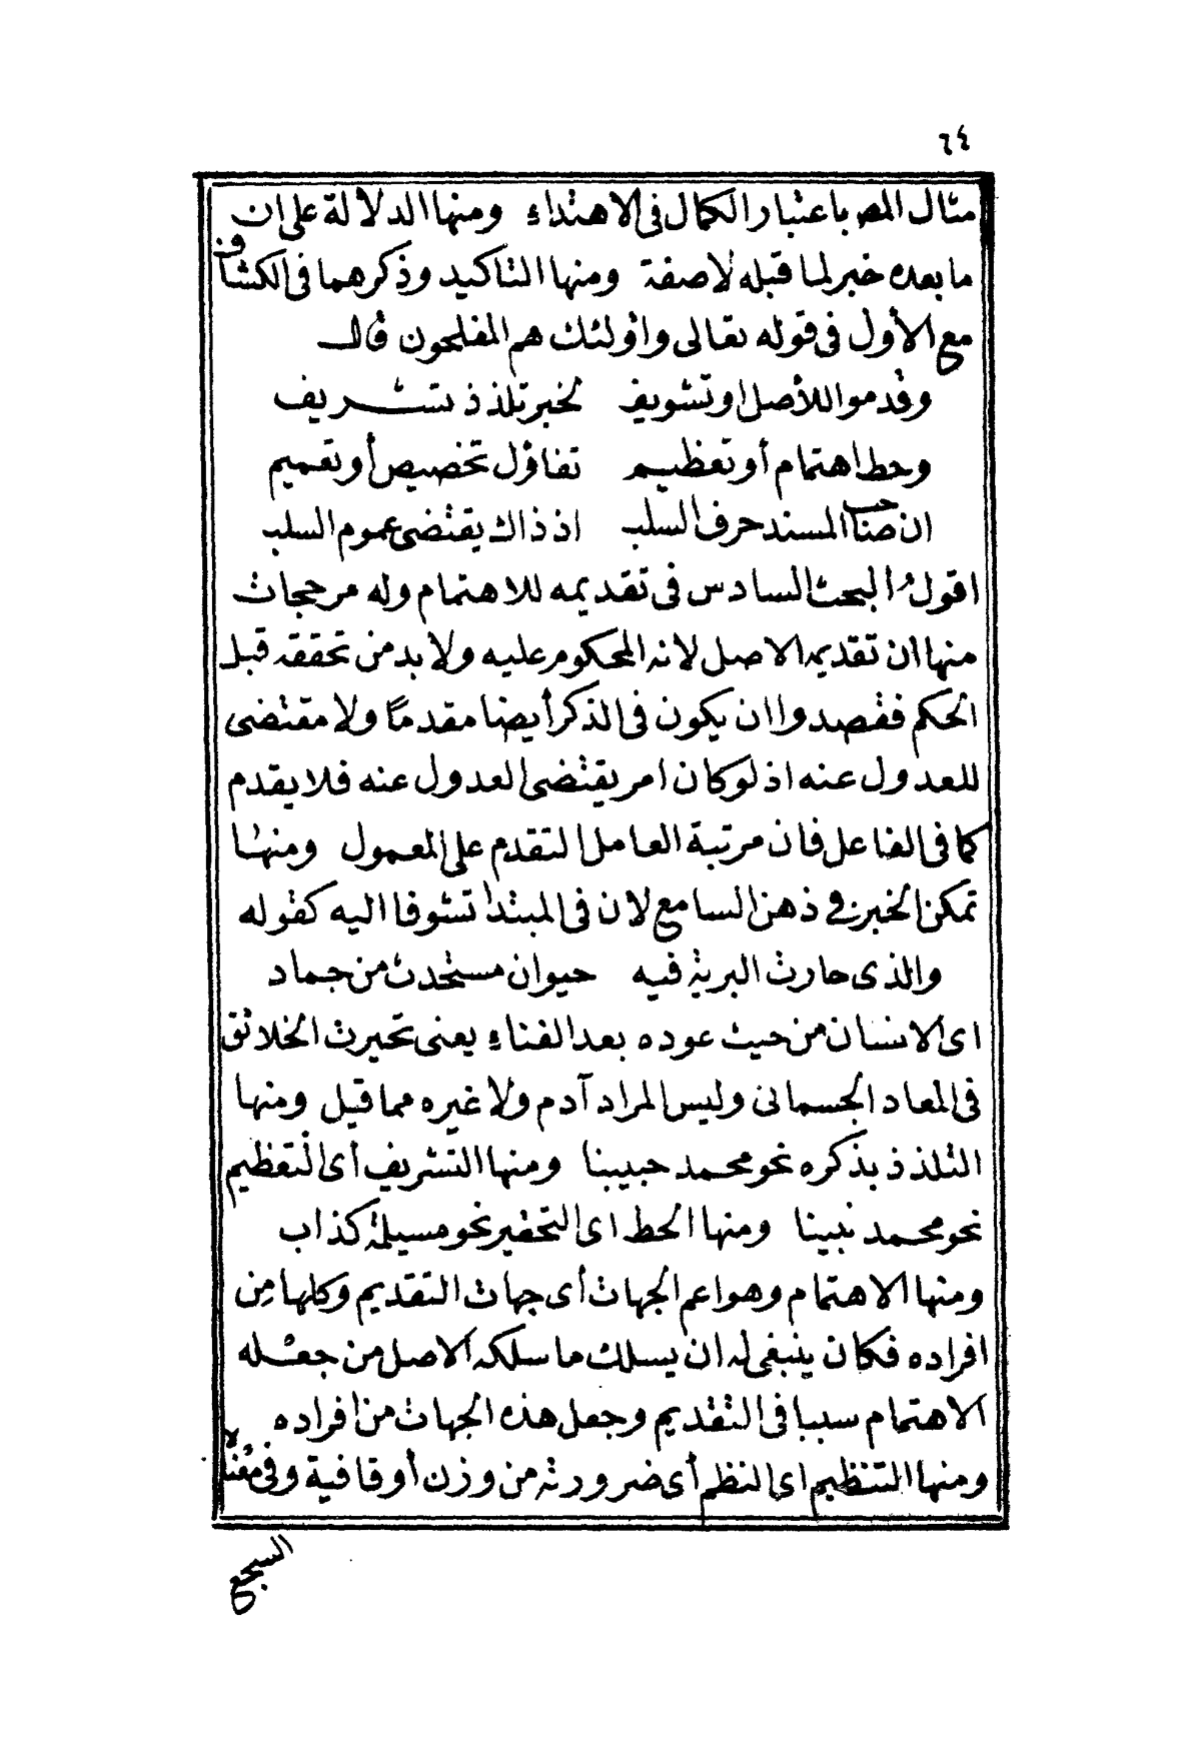 ٦٤
مثال المص باعتبار الكمال فى الاهتداء ومنها الدلالة على ان
ما بعده خبر لما قبله لا صفة ومنها التاكيد وذكرهما فى الكشاف
مع الأول فى قوله تعالى واولئك هم المفلحون قال
وقدموا للأصل او تشويف لخبر تلذذ تشريف
وحط اهتمام أو تعظيم تفاؤل تخصيص أو تعميم
ان صاحب المسند حرف السلب اذ ذاك يقتضى عموم السلب
اقول البحث السادس فى تقديمه للاهتمام وله مرجحات
منها ان تقديمه الاصل لانه المحكوم عليه ولا بد من تحققه قبل
الحكم فقصدوا ان يكون فى الذكر أيضا مقدمًا ولا مقتضى
للعدول عنه اذ لو كان امر يقتضى العدول عنه فلا يقدم
كما فى الفاعل فان مرتبة العامل التقدم على المعمول ومنها
تمكن الخبر فى ذهن السامع لان فى المبتدأ تشوفا اليه كقوله
والذى حارت البرية فيه حيوان مستحدث من جماد
اى الانسان من حيث عوده بعد الفناء يعنى تحيرت الخلائق
فى المعاد الجسمانى وليس المراد آدم ولا غيره مما قيل ومنها
التلذذ بذكره نحو محمد حبيبنا ومنها التشريف أى التعظيم
نحو محمد نبينا ومنها الحط اى التحقير نحو مسيلمة كذاب
ومنها الاهتمام وهو اعم الجهات أى جهات التقديم وكلها من
افراده فكان ينبغى له ان يسلك ما سلكه الاصل من جعله
الاهتمام سببا فى التقديم وجعل هذه الجهات من افراده
ومنها التنظيم اى النظم أى ضرورته من وزن أو قافية وفى معناه
السجع